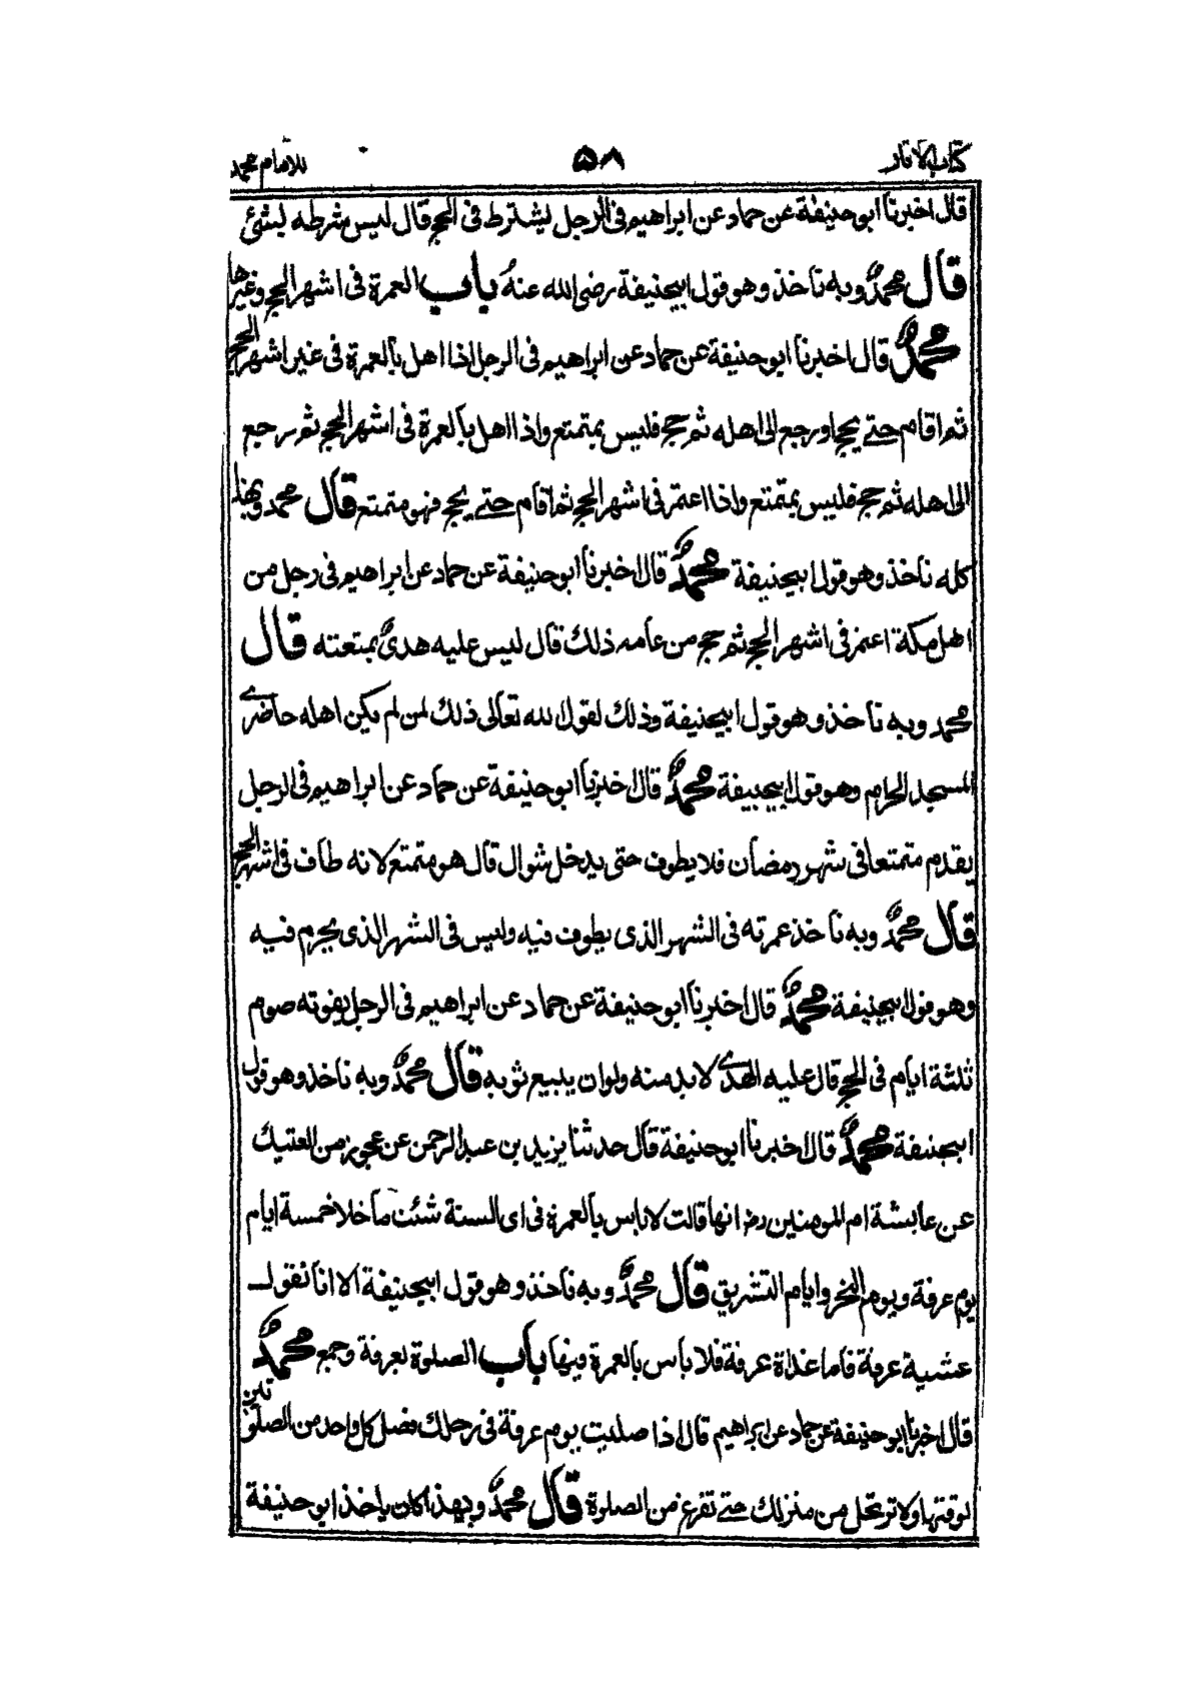 كتاب الآثار ۵۸ للامام محمد
قال اخبرنا ابو حنيفة عن حماد عن ابراهيم فى الرجل يشترط فى الحج قال ليس شرطه بشئ
قال محمدؒ وبه ناخذ وهو قول ابيحنيفة رضى الله عنه باب العمرة فى اشهر الحج وغيرها
محمدؒ قال اخبرنا ابو حنيفة عن حماد عن ابراهيم فى الرجل اذا اهل بالعمرة فى غير اشهر الحج
ثم اقام حتے يحج او رجع الى اهله ثم حج فليس بمتمتع واذا اهل بالعمرة فى اشهر الحج ثم رجع
الى اهله ثم حج فليس بمتمتع واذا اعتمر فى اشهر الحج ثم اقام حتے يحج فهو متمتع قال محمد وبهذا
كله ناخذ وهو قول ابيحنيفة محمدؒ قال اخبرنا ابو حنيفة عن حماد عن ابراهيم فى رجل من
اهل مكة اعتمر فى اشهر الحج ثم حج من عامه ذلك قال ليس عليه هدى بمتعته قال
محمد وبه ناخذ وهو قول ابيحنيفة وذلك لقول الله تعالى ذلك لمن لم يكن اهله حاضرے
المسجد الحرام وهو قول ابيحنيفة محمدؒ قال اخبرنا ابو حنيفة عن حماد عن ابراهيم فى الرجل
يقدم متمتعا فى شهر رمضان فلا يطوف حتى يدخل شوال قال هو متمتع لانه طاف فى اشهر الحج
قال محمدؒ وبه ناخذ عمرته فى الشهر الذى يطوف فيه وليس فى الشهر الذى يحرم فيه
وهو قول ابيحنيفة محمدؒ قال اخبرنا ابو حنيفة عن حماد عن ابراهيم فى الرجل يفوته صوم
ثلثة ايام فى الحج قال عليه الهدے لا بد منه ولو ان يبيع ثوبه قال محمدؒ وبه ناخذ وهو قول
ابيحنيفة محمدؒ قال اخبرنا ابو حنيفة قال حدثنا يزيد بن عبد الرحمن عن عجوز من العتيك
عن عايشة ام المومنين رضـ انها قالت لا باس بالعمرة فى اى السنة شئت ما خلا خمسة ايام
يوم عرفة ويوم النحر وايام التشريق قال محمدؒ وبه ناخذ وهو قول ابيحنيفة الا انا نقول
عشية عرفة فاما غداة عرفة فلا باس بالعمرة فيها باب الصلوة بعرفة وجمع محمدؒ
قال اخبرنا ابو حنيفة عن حماد عن ابراهيم قال اذا صليت يوم عرفة فى رحلك فصل كل واحد من الصلوتين
لوقتها ولا ترتحل من منزلك حتے تفرغ من الصلوة قال محمدؒ وبهذا كان ياخذ ابو حنيفة